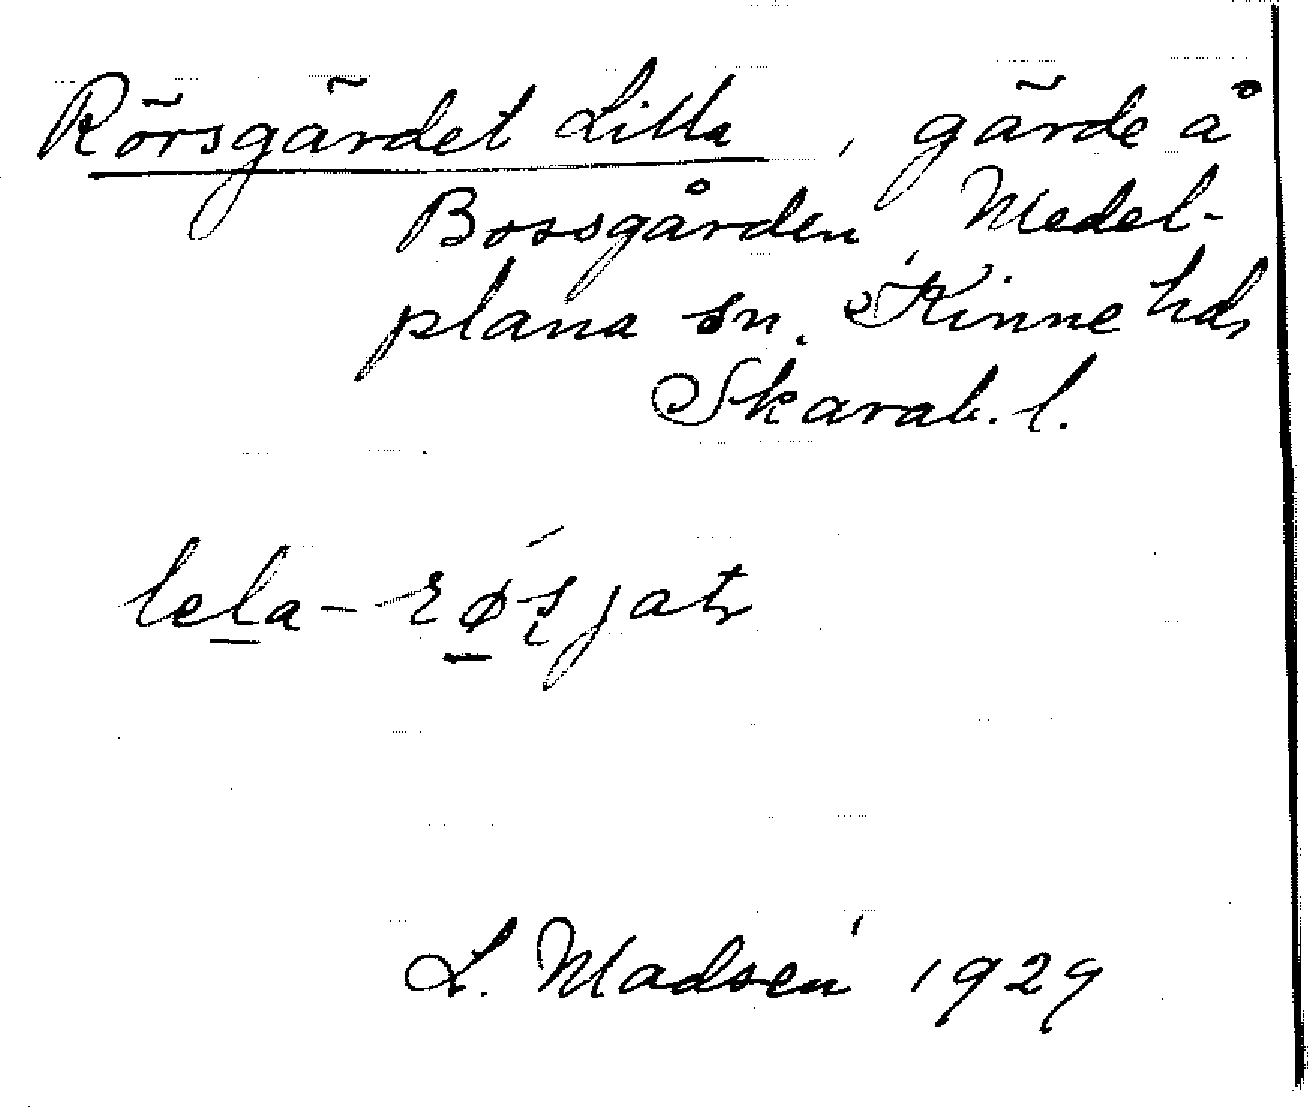 Rörsgärdet Lilla, gärde å
Bossgården, Medel-
plana sn. Kinne hd,
Skarab. l.
lela-
L. Madsén 1929